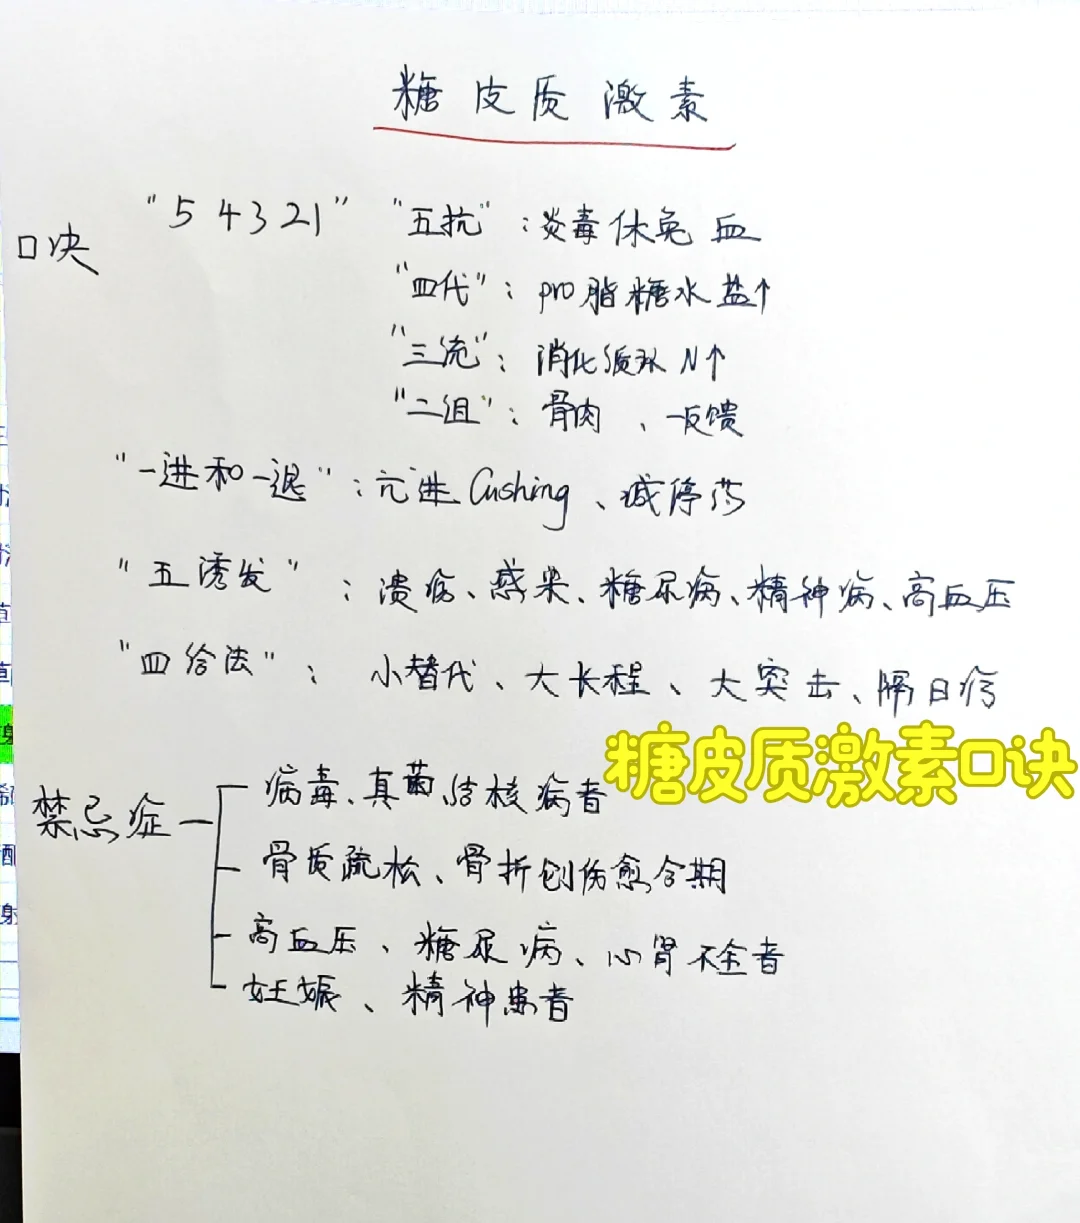 糖皮质激素
口诀
"54321" "五抗"：炎毒休免血
"四代"：pro脂糖水盐↑
"三流"：消化 N↑
"二组"：骨肉、反馈
"一进和一退"：亢进Cushing、减停药
"五诱发"：溃疡、感染、糖尿病、精神病、高血压
"四给法"：小替代、大长程、大突击、隔日疗
糖皮质激素口诀
禁忌症
病毒、真菌、结核病者
骨质疏松、骨折创伤愈合期
高血压、糖尿病、心肾不全者
妊娠、精神患者